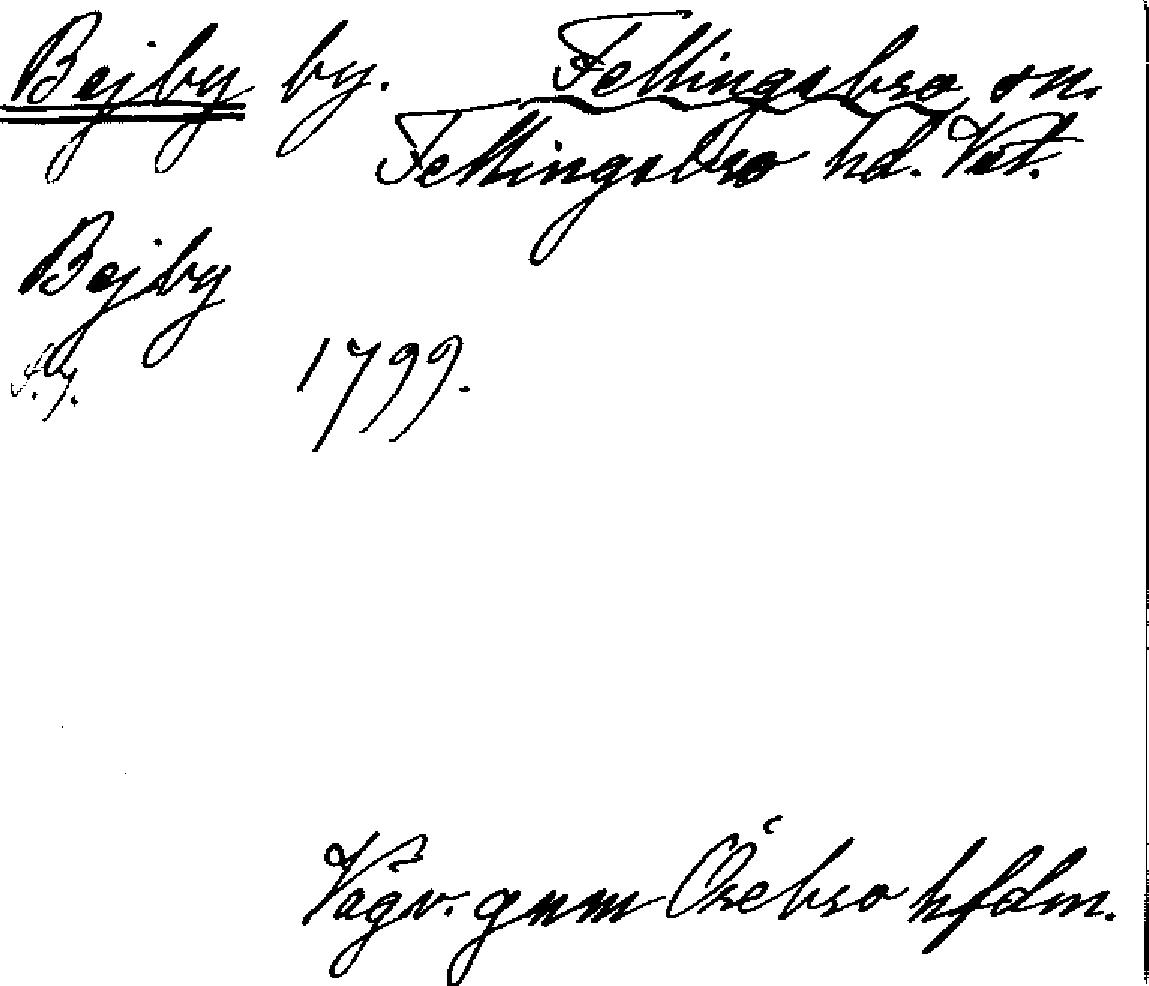 Bejby by. Fellingsbro sn.
Fellingsbro hd. Vst.
Bejby
1799.
Vägv. gnm Örebro hfdm.